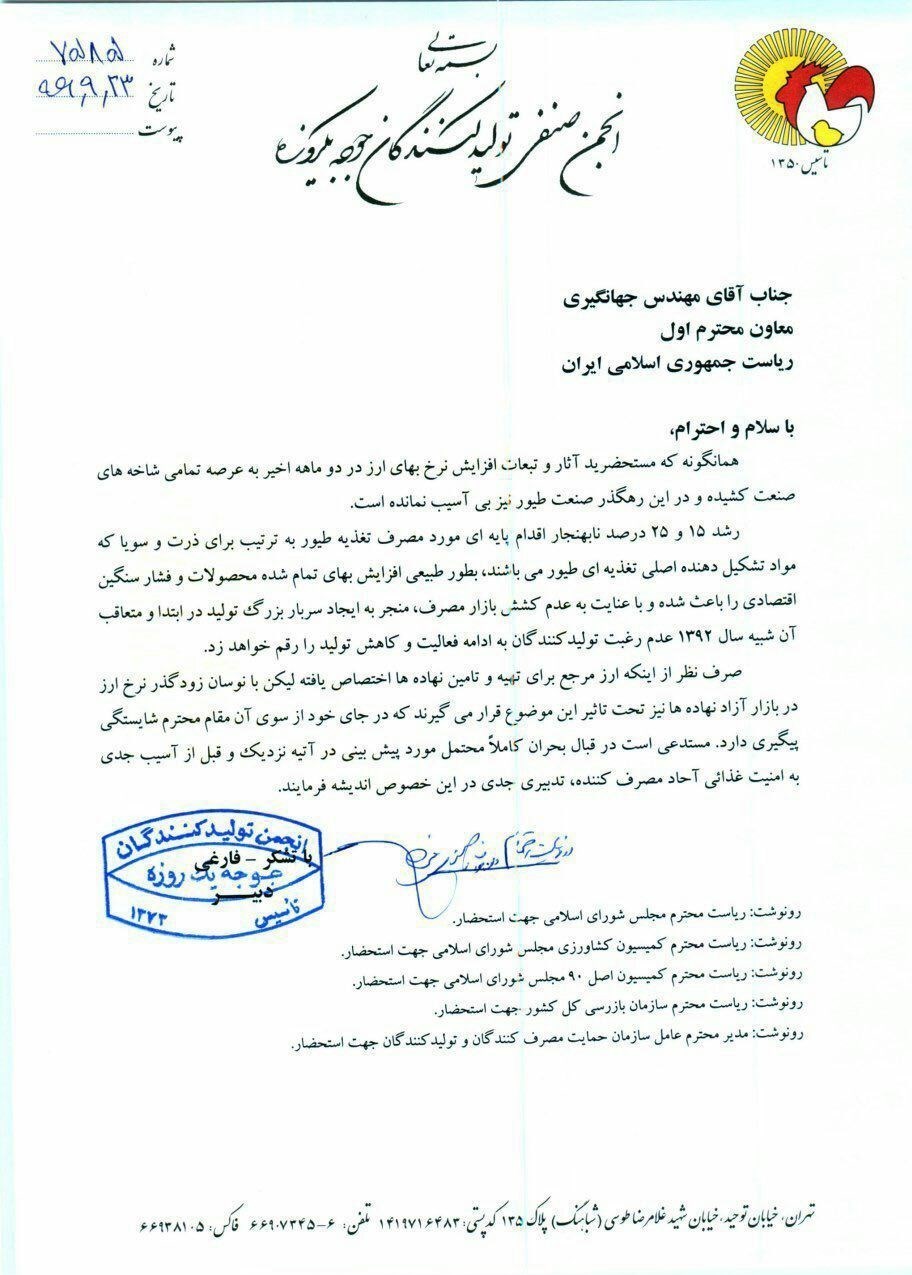 بسمه تعالی
انجمن صنفی تولیدکنندگان جوجه یکروزه
تاسیس ۱۳۵۰
شماره
تاریخ ۹۶,۹,۲۳
پیوست
جناب آقای مهندس جهانگیری
معاون محترم اول
ریاست جمهوری اسلامی ایران
با سلام و احترام،
همانگونه که مستحضرید آثار و تبعات افزایش نرخ بهای ارز در دو ماهه اخیر به عرصه تمامی شاخه های
صنعت کشیده و در این رهگذر صنعت طیور نیز بی آسیب نمانده است.
رشد ۱۵ و ۲۵ درصد نابهنجار اقدام پایه ای مورد مصرف تغذیه طیور به ترتیب برای ذرت و سویا که
مواد تشکیل دهنده اصلی تغذیه ای طیور می باشند، بطور طبیعی افزایش بهای تمام شده محصولات و فشار سنگین
اقتصادی را باعث شده و با عنایت به عدم کشش بازار مصرف، منجر به ایجاد سربار بزرگ تولید در ابتدا و متعاقب
آن شبیه سال ۱۳۹۲ عدم رغبت تولیدکنندگان به ادامه فعالیت و کاهش تولید را رقم خواهد زد.
صرف نظر از اینکه ارز مرجع برای تهیه و تامین نهاده ها اختصاص یافته لیکن با نوسان زودگذر نرخ ارز
در بازار آزاد نهاده ها نیز تحت تاثیر این موضوع قرار می گیرند که در جای خود از سوی آن مقام محترم شایستگی
پیگیری دارد. مستدعی است در قبال بحران کاملاً محتمل مورد پیش بینی در آتیه نزدیک و قبل از آسیب جدی
به امنیت غذائی آحاد مصرف کننده، تدبیری جدی در این خصوص اندیشه فرمایند.
انجمن تولیدکنندگان
با تشکر - فارغی
جوجه یک روزه
دبیر
تأسیس ۱۳۷۳
رونوشت: ریاست محترم مجلس شورای اسلامی جهت استحضار.
رونوشت: ریاست محترم کمیسیون کشاورزی مجلس شورای اسلامی جهت استحضار.
رونوشت: ریاست محترم کمیسیون اصل ۹۰ مجلس شورای اسلامی جهت استحضار.
رونوشت: ریاست محترم سازمان بازرسی کل کشور جهت استحضار.
رونوشت: مدیر محترم عامل سازمان حمایت مصرف کنندگان و تولیدکنندگان جهت استحضار.
تهران، خیابان توحید، خیابان شهید غلامرضا طوسی (شباهنگ) پلاک ۱۳۵ کدپستی: ۱۴۱۹۷۱۶۴۸۳ تلفن: ۶-۶۶۹۰۷۳۴۵ فاکس: ۶۶۹۳۸۱۰۵